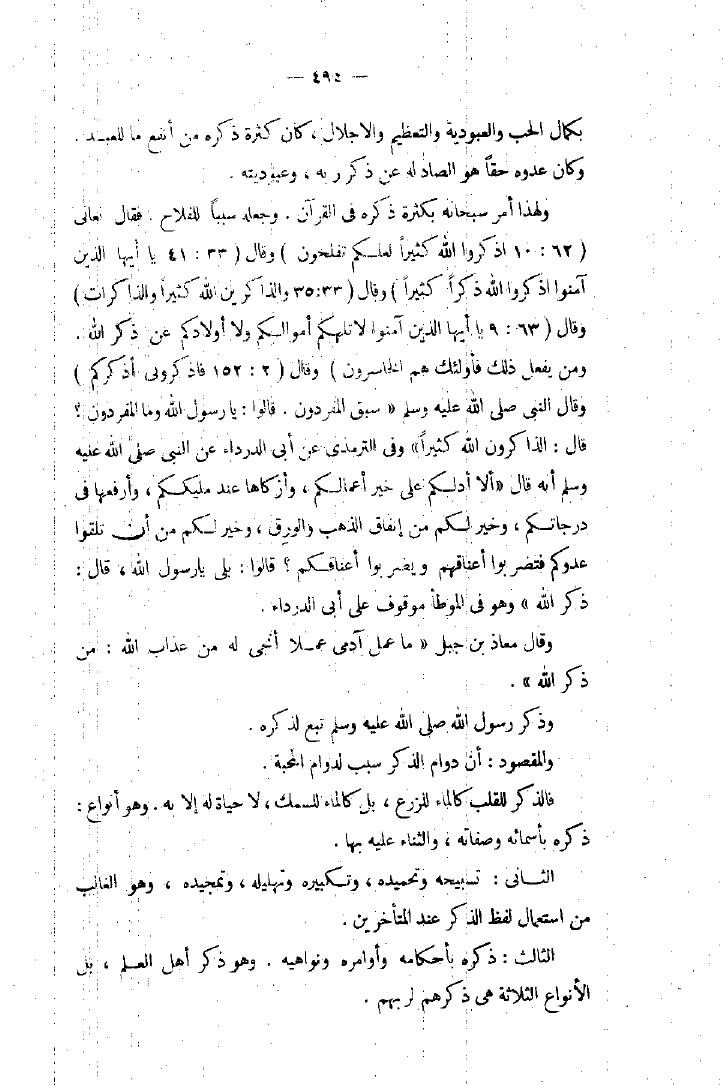 — ٤٩٤ —
بكمال الحب والعبودية والتعظيم والاجلال ، كان كثرة ذكره من أنفع ما للعبـد .
وكان عدوه حقاً هو الصاد له عن ذكر ربه ، وعبوديته .
ولهذا أمر سبحانه بكثرة ذكره فى القرآن . وجعله سبباً للفلاح . فقال تعالى
( ٦٢ : ١٠ اذكروا الله كثيراً لعلـكم تفلحون ) وقال ( ٣٣ : ٤١ يا أيها الذين
آمنوا اذكروا الله ذكراً كثيراً ) وقال ( ٣٣:٣٥ والذاكرين الله كثيراً والذاكرات)
وقال ( ٦٣ : ٩ يا أيها الذين آمنوا لاتلهكم أموالـكم ولا أولادكم عن ذكر الله .
ومن يفعل ذلك فأولئك هم الخاسرون ) وقال ( ٢ : ١٥٢ فاذكرونى أذكركم )
وقال النبى صلى الله عليه وسلم « سبق المفردون . قالوا : يا رسول الله وما المفردون ؟
قال : الذاكرون الله كثيراً» وفى الترمذى عن أبى الدرداء عن النبى صلى الله عليه
وسلم أنه قال «ألا أدلـكم على خير أعمالـكم ، وأزكاها عند مليكـكم ، وأرفعها فى
درجاتـكم ، وخير لـكم من إنفاق الذهب والورق ، وخير لـكم من أن تلقوا
عدوكم فتضربوا أعناقهم ويضربوا أعناقـكم ؟ قالوا : بلى يارسول الله ، قال :
ذكر الله » وهو فى الموطأ موقوف على أبى الدرداء .
وقال معاذ بن جبل « ما عمل آدمى عمـلا أنجى له من عذاب الله : من
ذكر الله » .
وذكر رسول الله صلى الله عليه وسلم تبع لذكره .
والمقصود : أن دوام الذكر سبب لدوام المحبة .
فالذكر للقلب كالماء للزرع ، بل كالماء للسمك ، لا حياة له إلا به . وهو أنواع :
ذكره بأسمائه وصفاته ، والثناء عليه بها .
الثـانى : تسبيحه وتحميده ، وتـكبيره وتهليله ، وتمجيده ، وهو الغالب
من استعمال لفظ الذكر عند المتأخرين .
الثالث : ذكره بأحكامه وأوامره ونواهيه . وهو ذكر أهل العـلم ، بل
الأنواع الثلاثة هى ذكرهم لربهم .